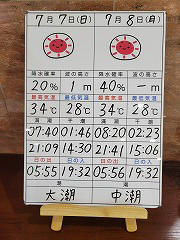 7月7日(日) 7月8日(月)
降水確率 波の高さ 降水確率 波の高さ
20% 1m 40% -m
最高気温 最低気温 最高気温 最低気温
34℃ 28℃ 34℃ 28℃
満潮 干潮 満潮 干潮
07:40 01:46 08:20 02:23
21:09 14:30 21:41 15:06
日の出 日の入 日の出 日の入
05:55 19:32 05:56 19:32
潮 潮
大潮 中潮